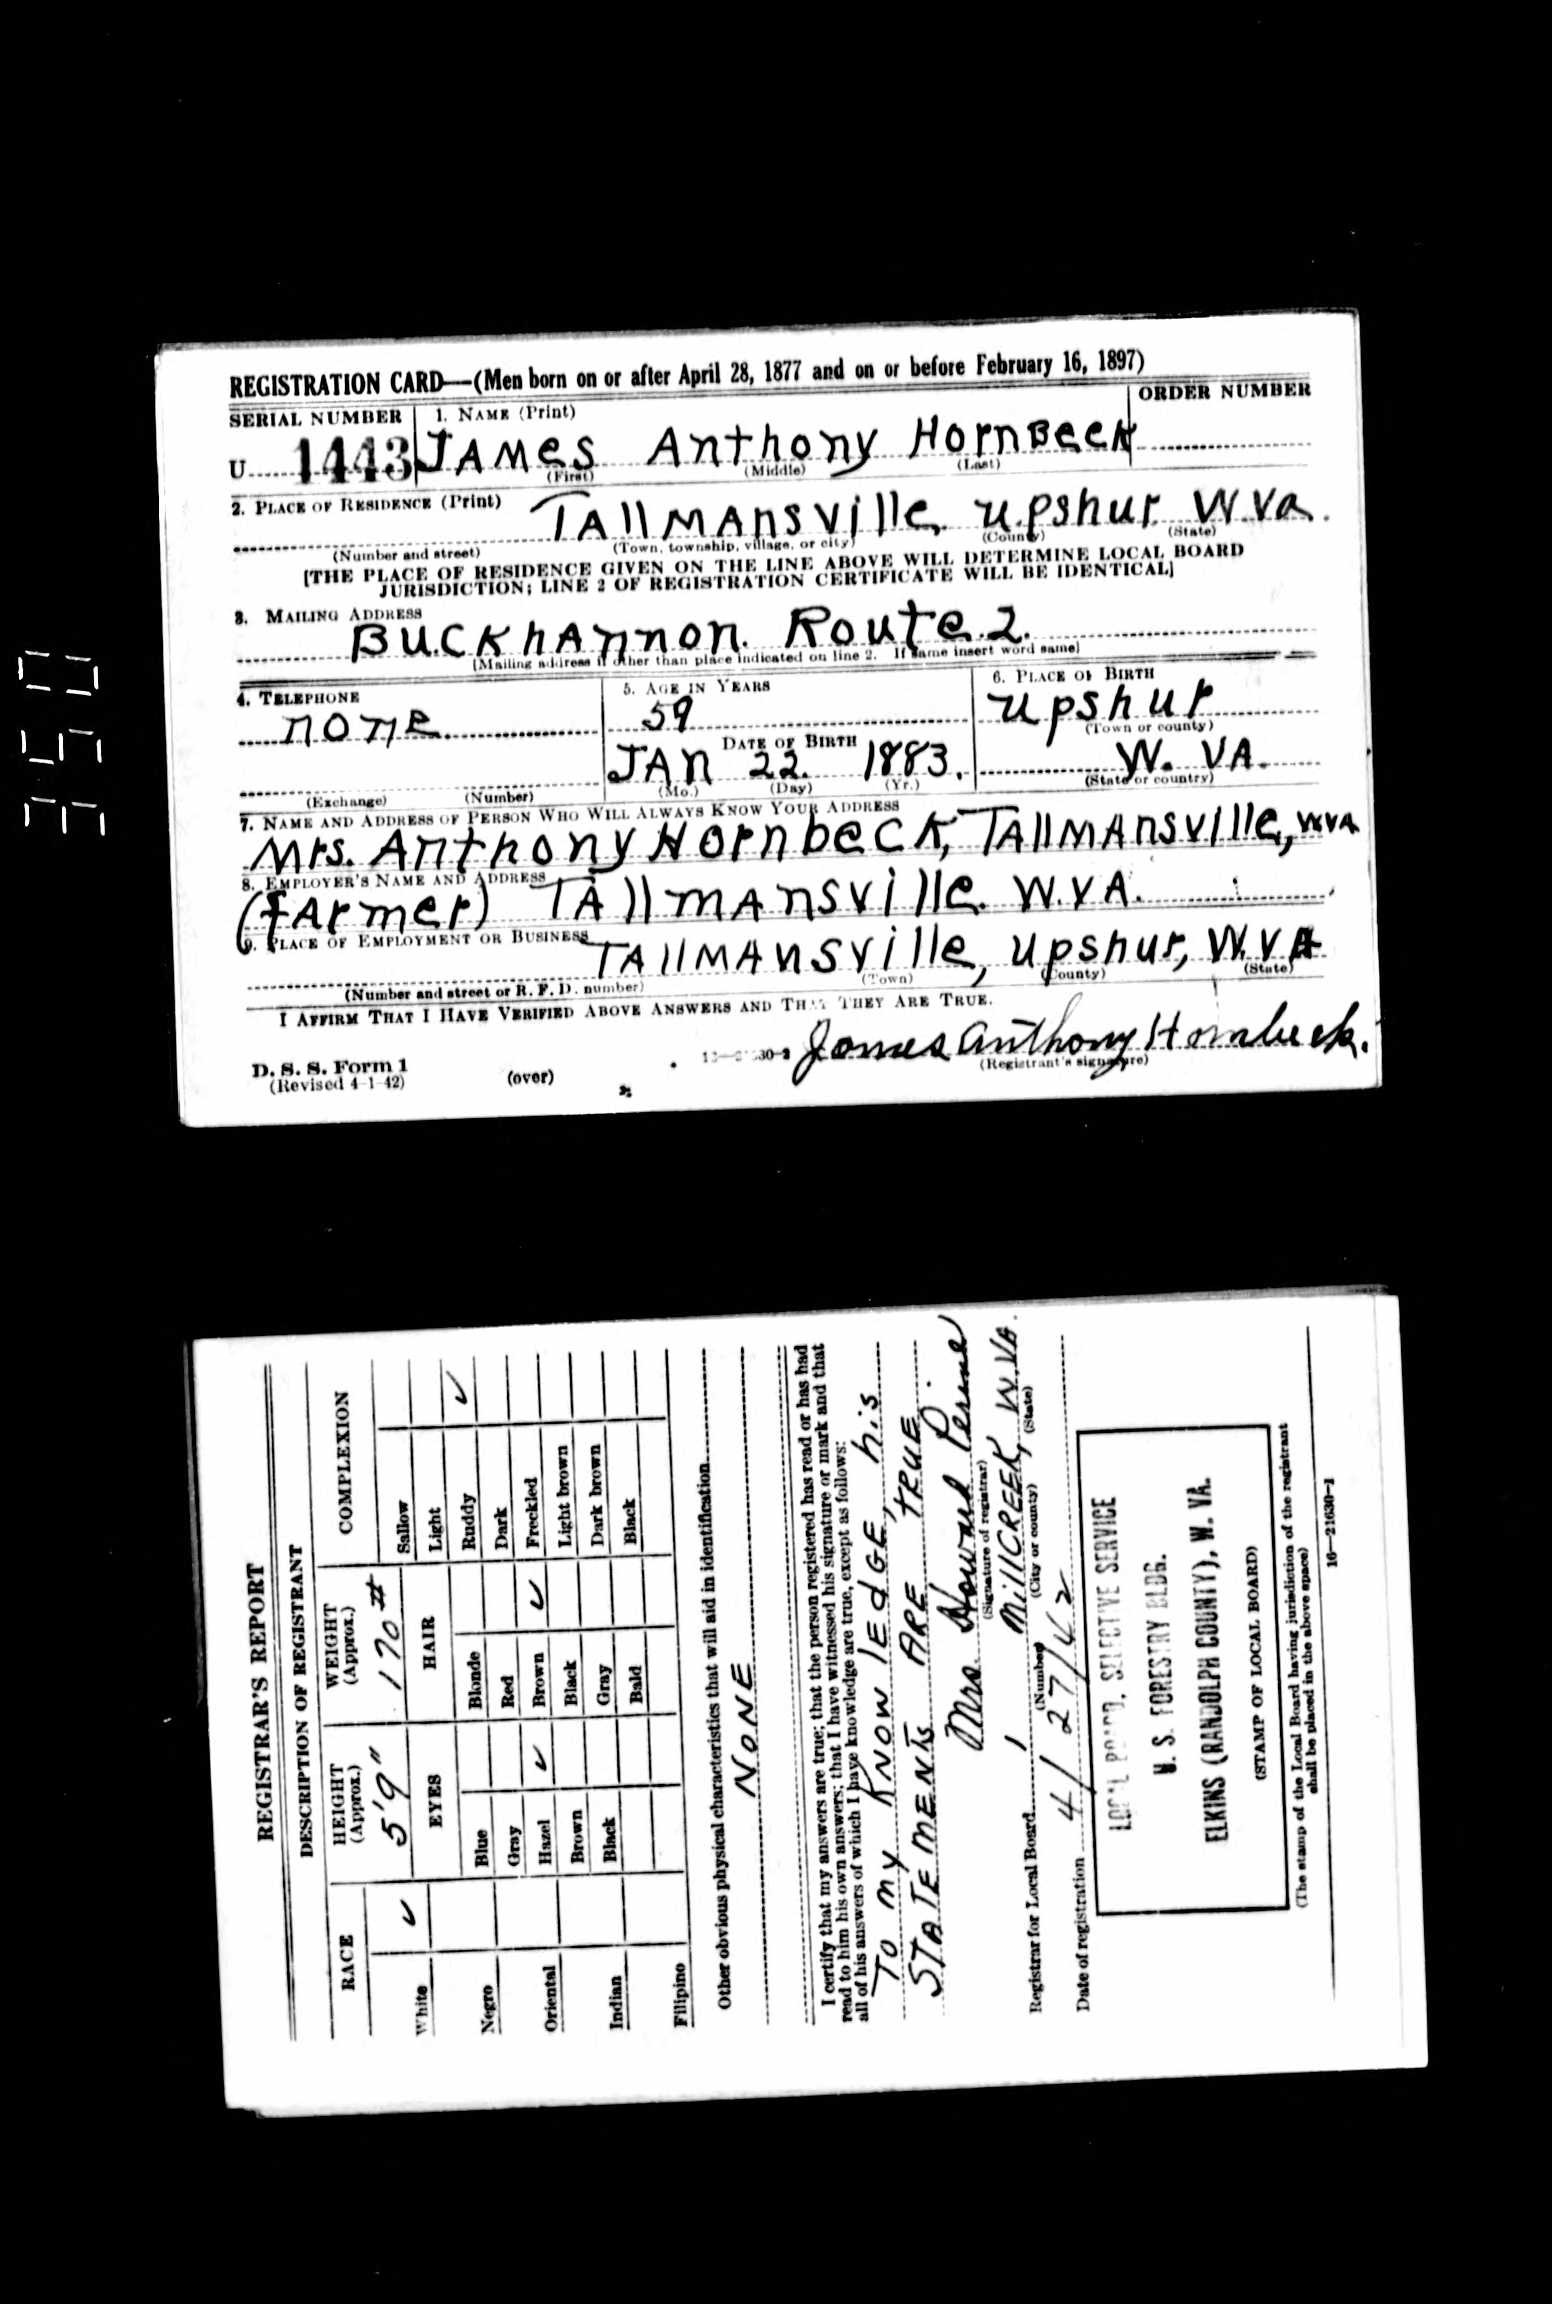 350
REGISTRATION CARD—(Men born on or after April 28, 1877 and on or before February 16, 1897)
SERIAL NUMBER 1. NAME (Print) ORDER NUMBER
U 1443 JAMES Anthony HornBeck
(First) (Middle) (Last)
2. PLACE OF RESIDENCE (Print)
TAllMAnsville, upshur W.Va.
(Number and street) (Town, township, village, or city) (County) (State)
[THE PLACE OF RESIDENCE GIVEN ON THE LINE ABOVE WILL DETERMINE LOCAL BOARD
JURISDICTION; LINE 2 OF REGISTRATION CERTIFICATE WILL BE IDENTICAL]
3. MAILING ADDRESS
BUCKhAnnon. Route 2.
[Mailing address if other than place indicated on line 2. If same insert word same]
4. TELEPHONE 5. AGE IN YEARS 6. PLACE OF BIRTH
none 59 upshur
(Town or county)
DATE OF BIRTH
JAn 22. 1883. W. VA.
(Exchange) (Number) (Mo.) (Day) (Yr.) (State or country)
7. NAME AND ADDRESS OF PERSON WHO WILL ALWAYS KNOW YOUR ADDRESS
Mrs. Anthony Hornbeck, TAllMAnsville, W.VA
8. EMPLOYER'S NAME AND ADDRESS
(fArmer) TAllmAnsville. W.VA.
9. PLACE OF EMPLOYMENT OR BUSINESS
TAllMAnsville, upshur, W.VA
(Number and street or R. F. D. number) (Town) (County) (State)
I AFFIRM THAT I HAVE VERIFIED ABOVE ANSWERS AND THAT THEY ARE TRUE.
James Anthony Hornbeck.
D. S. S. Form 1
(Revised 4-1-42) (over) (Registrant's signature)
REGISTRAR'S REPORT
DESCRIPTION OF REGISTRANT
RACE HEIGHT (Approx.) WEIGHT (Approx.) COMPLEXION
5'9" 170#
EYES HAIR
White ✓ Sallow
Blue Blonde Light
Negro Gray Red Ruddy ✓
Hazel ✓ Brown ✓ Dark
Oriental Brown Black Freckled
Black Gray Light brown
Indian Bald Dark brown
Black
Filipino
Other obvious physical characteristics that will aid in identification
NONE
I certify that my answers are true; that the person registered has read or has had
read to him his own answers; that I have witnessed his signature or mark and that
all of his answers of which I have knowledge are true, except as follows:
To my KNOWlEdGE, his
STATEMENTS ARE TRUE
Mrs Howard Perine
(Signature of registrar)
Registrar for Local Board , MillCREEK, W.VA.
(Number) (City or county) (State)
Date of registration 4/27/42
LOCAL BOARD, SELECTIVE SERVICE
U. S. FORESTRY BLDG.
ELKINS (RANDOLPH COUNTY), W. VA.
(STAMP OF LOCAL BOARD)
(The stamp of the Local Board having jurisdiction of the registrant
shall be placed in the above space)
16—21630-1